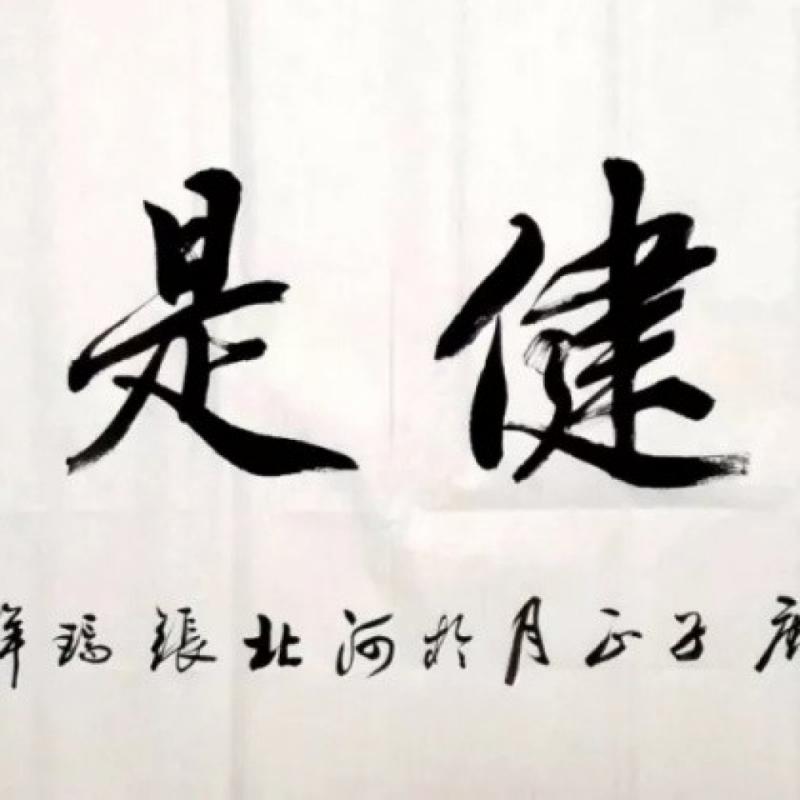 健是
庚子正月於河北張瑞祥